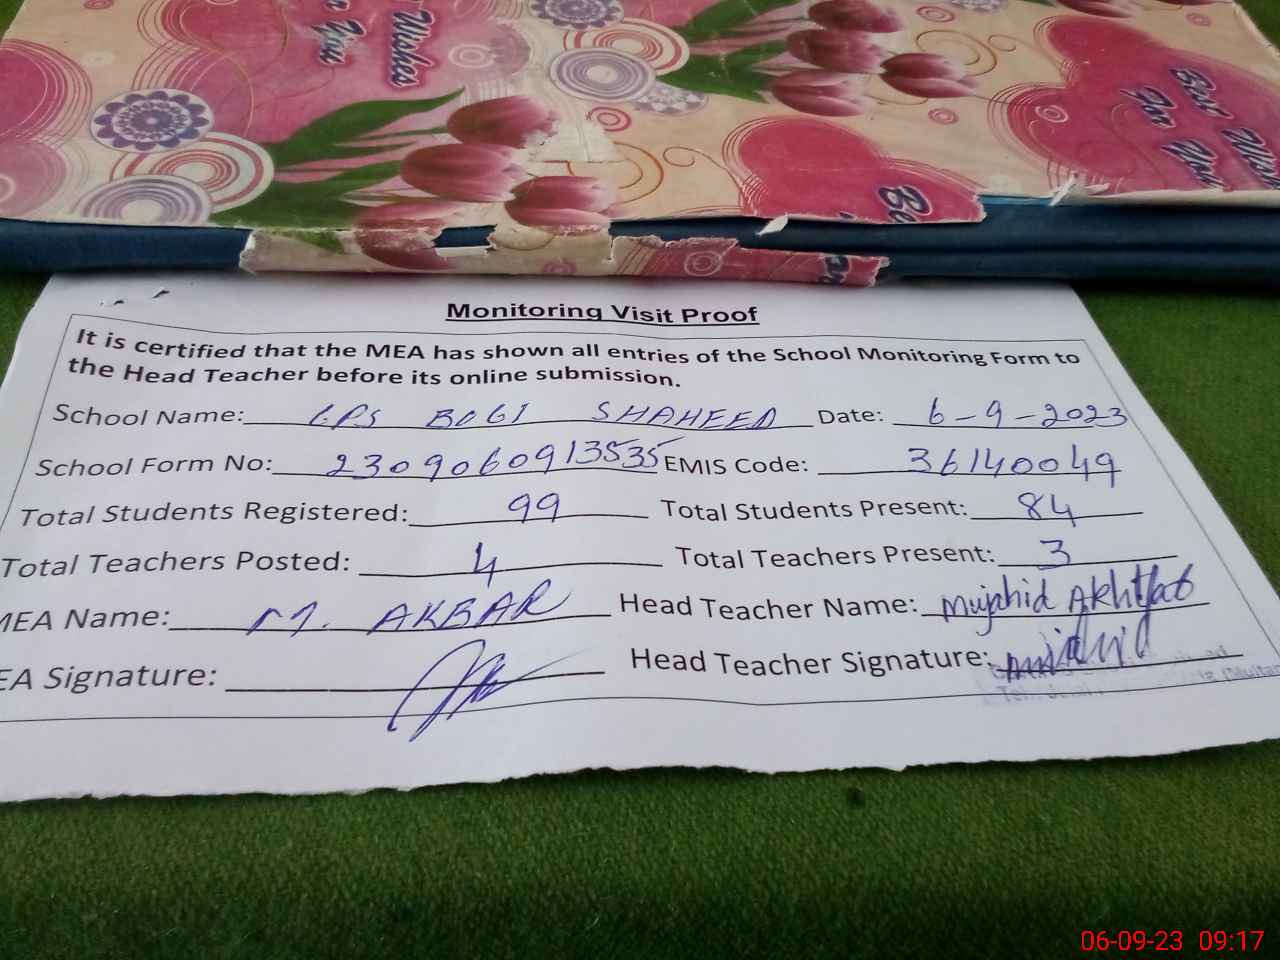 Best Wishes
For You
Best Wishes
For You
Monitoring Visit Proof
It is certified that the MEA has shown all entries of the School Monitoring Form to
the Head Teacher before its online submission.
School Name: GPS BOGI SHAHEED Date: 6-9-2023
School Form No: 2309060913535 EMIS Code: 36140049
Total Students Registered: 99 Total Students Present: 84
Total Teachers Posted: 4 Total Teachers Present: 3
MEA Name: M. AKBAR Head Teacher Name: Mujahid Akhtar
EA Signature: Head Teacher Signature: Mujahid
06-09-23 09:17